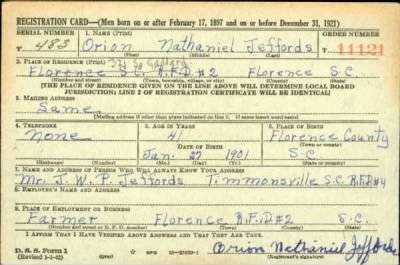 REGISTRATION CARD—(Men born on or after February 17, 1897 and on or before December 31, 1921)
SERIAL NUMBER 1. NAME (Print) ORDER NUMBER
T 483 Orion Nathaniel Jeffords 11121
(First) (Middle) (Last)
2. PLACE OF RESIDENCE (Print)
Florence S.C. R.F.D. #2 Florence S.C.
(Number and street) (Town, township, village, or city) (County) (State)
[THE PLACE OF RESIDENCE GIVEN ON THE LINE ABOVE WILL DETERMINE LOCAL BOARD
JURISDICTION; LINE 2 OF REGISTRATION CERTIFICATE WILL BE IDENTICAL]
3. MAILING ADDRESS
Same
[Mailing address if other than place indicated on line 2. If same insert word same]
4. TELEPHONE 5. AGE IN YEARS 6. PLACE OF BIRTH
None 41 Florence County
DATE OF BIRTH (Town or county)
Jan. 27 1901 S.C
(Exchange) (Number) (Mo.) (Day) (Yr.) (State or country)
7. NAME AND ADDRESS OF PERSON WHO WILL ALWAYS KNOW YOUR ADDRESS
Mr. J. W. P. Jeffords Timmonsville S.C. R.F.D. #4
8. EMPLOYER'S NAME AND ADDRESS
9. PLACE OF EMPLOYMENT OR BUSINESS
Farmer Florence R.F.D #2 S.C.
(Number and street or R. F. D. number) (Town) (County) (State)
I AFFIRM THAT I HAVE VERIFIED ABOVE ANSWERS AND THAT THEY ARE TRUE.
D. S. S. Form 1
(Revised 1-1-42) (over)
Orion Nathaniel Jeffords
(Registrant's signature)